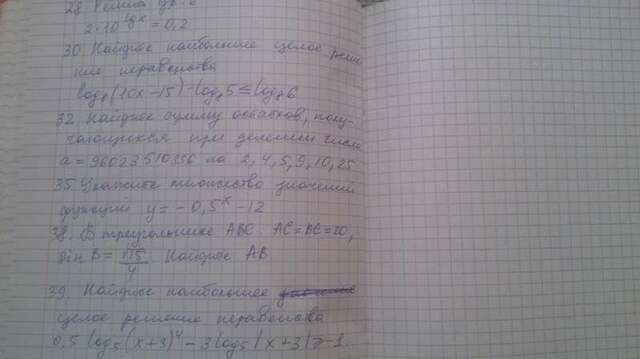 28 Решить ур-е
2·10^lg x = 0,2
30 Найдите наибольшее целое реше-
ние неравенства
log₈(10x-15)-log₈5≤log₈6
32 Найдите сумму остатков, полу-
чающихся при делении числа
a=96023510356 на 2,4,5,9,10,25
35 Укажите множество значений
функций y = -0,5^x -12
38. В треугольнике ABC AC=BC=20,
sin B = √15/4 Найдите AB
39 Найдите наибольшее
целое решение неравенства
0,5 log₅(x+3)⁴-3log₅|x+3|≥-1.